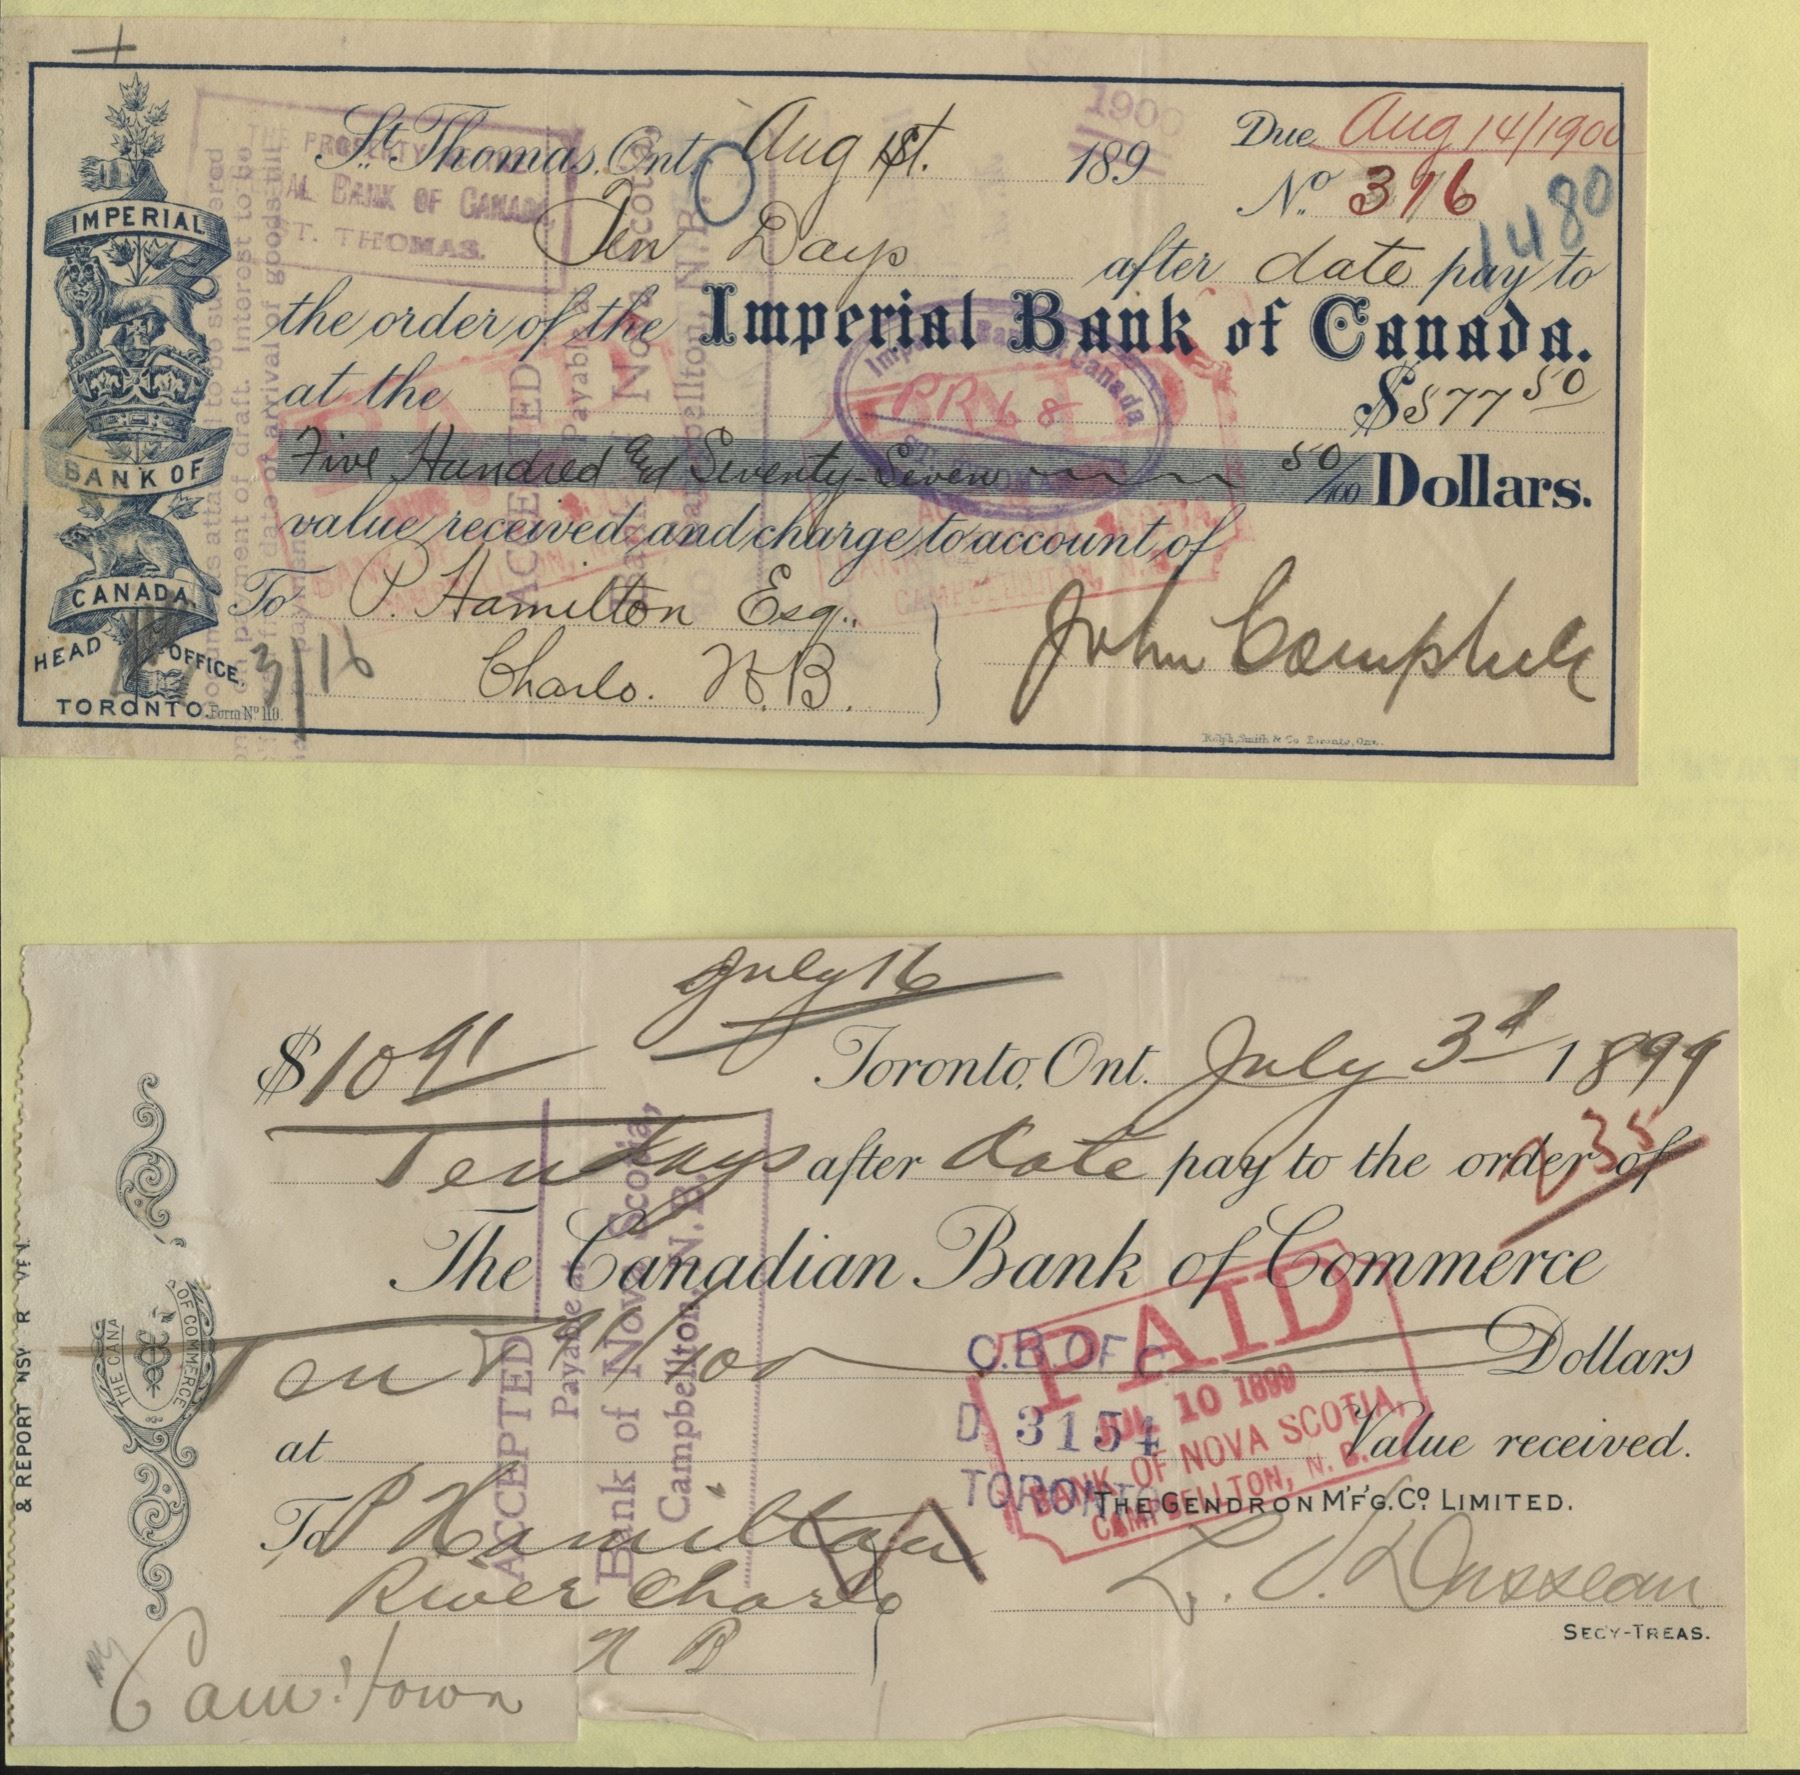 St. Thomas, Ont, Aug 1st. 189
1900
Due Aug 14/1900
No. 316
1480
THE PROPERTY
AL BANK OF CANADA
ST. THOMAS.
Ten Days after date pay to
the order of the Imperial Bank of Canada.
at the $577 50
Five Hundred and Seventy-Seven 50/100 Dollars.
value received and charge to account of
To P. Hamilton Esq.,
Charlo. N.B.
John Campbell
IMPERIAL
BANK OF
CANADA
HEAD OFFICE,
TORONTO.
Form No 110.
3116
Rolph, Smith & Co Toronto, Ont.
Imperial Bank of Canada
ACCEPTED
Payable at
Bank of Nova Scotia,
Campbellton, N.B.
PAID
CAMPBELLTON, N.B.
July 16
$10 91 Toronto, Ont. July 3d 1899
Ten days after date pay to the order of
35
The Canadian Bank of Commerce
Ten & 91/100 Dollars
at Value received.
To P Hamilton
River Charlo
N B
THE GENDRON M'F'G. CO. LIMITED.
SECY-TREAS.
Cam'town
THE CANA
OF COMMERCE
& REPORT
ACCEPTED
Payable at
Bank of Nova Scotia,
Campbellton, N.B.
C.B. OF C
D 3154
TORONTO
PAID
JUL 10 1899
BANK OF NOVA SCOTIA,
CAMPBELLTON, N. B.